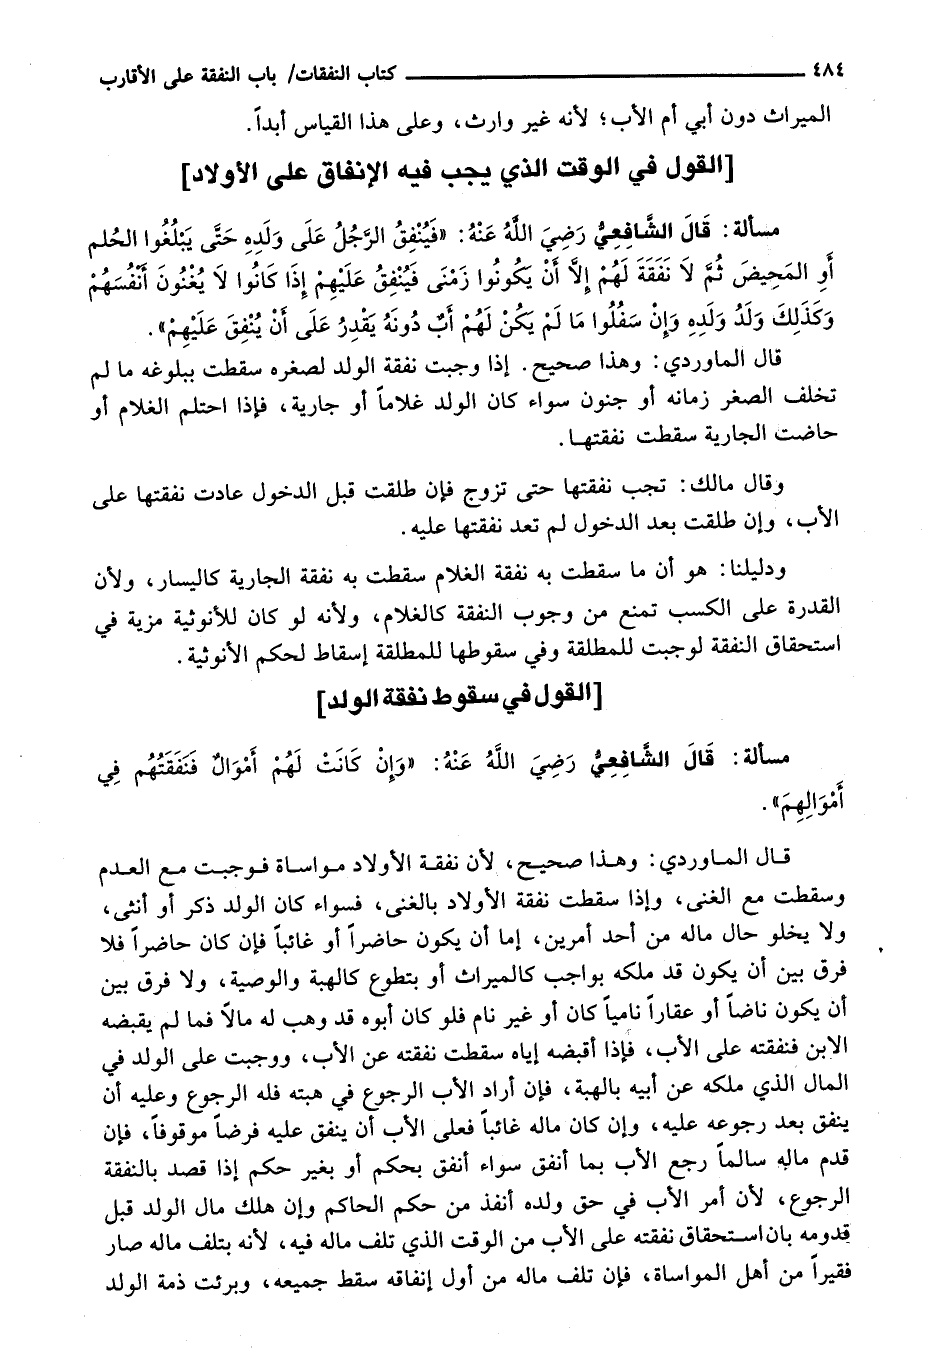 ٤٨٤ كتاب النفقات/ باب النفقة على الأقارب
الميراث دون أبي أم الأب؛ لأنه غير وارث، وعلى هذا القياس أبداً.
[القول في الوقت الذي يجب فيه الإنفاق على الأولاد]
مسألة: قَالَ الشَّافِعِيُّ رَضِيَ اللَّهُ عَنْهُ: «فَيُنْفِقُ الرَّجُلُ عَلَى وَلَدِهِ حَتَّى يَبْلُغُوا الحُلم
أَوِ المَحِيضَ ثُمَّ لَا نَفَقَةَ لَهُمْ إِلاَّ أَنْ يَكُونُوا زَمْنَى فَيُنْفِقُ عَلَيْهِمْ إِذَا كَانُوا لَا يُغْنُونَ أَنْفُسَهُمْ
وَكَذَلِكَ وَلَدُ وَلَدِهِ وَإِنْ سَفُلُوا مَا لَمْ يَكُنْ لَهُمْ أَبٌ دُونَهُ يَقْدِرُ عَلَى أَنْ يُنْفِقَ عَلَيْهِمْ».
قال الماوردي: وهذا صحيح. إذا وجبت نفقة الولد لصغره سقطت ببلوغه ما لم
تخلف الصغر زمانه أو جنون سواء كان الولد غلاماً أو جارية، فإذا احتلم الغلام أو
حاضت الجارية سقطت نفقتهـا.
وقال مالك: تجب نفقتها حتى تزوج فإن طلقت قبل الدخول عادت نفقتها على
الأب، وإن طلقت بعد الدخول لم تعد نفقتها عليه.
ودليلنا: هو أن ما سقطت به نفقة الغلام سقطت به نفقة الجارية كاليسار، ولأن
القدرة على الكسب تمنع من وجوب النفقة كالغلام، ولأنه لو كان للأنوثية مزية في
استحقاق النفقة لوجبت للمطلقة وفي سقوطها للمطلقة إسقاط لحكم الأنوثية.
[القول في سقوط نفقة الولد]
مسألة: قَالَ الشَّافِعِيُّ رَضِيَ اللَّهُ عَنْهُ: «وَإِنْ كَانَتْ لَهُمْ أَمْوَالٌ فَنَفَقَتُهُم فِي
أَمْوَالِهِمَ».
قال الماوردي: وهذا صحيح، لأن نفقة الأولاد مواساة فوجبت مع العدم
وسقطت مع الغنى، وإذا سقطت نفقة الأولاد بالغنى، فسواء كان الولد ذكر أو أنثى،
ولا يخلو حال ماله من أحد أمرين، إما أن يكون حاضراً أو غائباً فإن كان حاضراً فلا
فرق بين أن يكون قد ملكه بواجب كالميراث أو بتطوع كالهبة والوصية، ولا فرق بين
أن يكون ناضاً أو عقاراً نامياً كان أو غير نام فلو كان أبوه قد وهب له مالاً فما لم يقبضه
الابن فنفقته على الأب، فإذا أقبضه إياه سقطت نفقته عن الأب، ووجبت على الولد في
المال الذي ملكه عن أبيه بالهبة، فإن أراد الأب الرجوع في هبته فله الرجوع وعليه أن
ينفق بعد رجوعه عليه، وإن كان ماله غائباً فعلى الأب أن ينفق عليه فرضاً موقوفاً، فإن
قدم ماله سالماً رجع الأب بما أنفق سواء أنفق بحكم أو بغير حكم إذا قصد بالنفقة
الرجوع، لأن أمر الأب في حق ولده أنفذ من حكم الحاكم وإن هلك مال الولد قبل
قدومه بان استحقاق نفقته على الأب من الوقت الذي تلف ماله فيه، لأنه بتلف ماله صار
فقيراً من أهل المواساة، فإن تلف ماله من أول إنفاقه سقط جميعه، وبرئت ذمة الولد